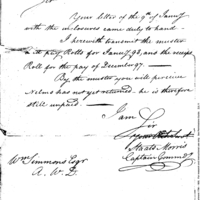 Sir
Your letter of the 9th of Janry
with the inclosures came duly to hand
I herewith transmit the muster
& pay Rolls for Janry 98, and the receipt
Roll for the pay of December 97.—
By the muster you will perceive
Nelms has not yet returned. he is therefore
still unpaid.—
I am Sir
Staats Morris
Captain Command
Wm Simmons Esqr
A. W. D.